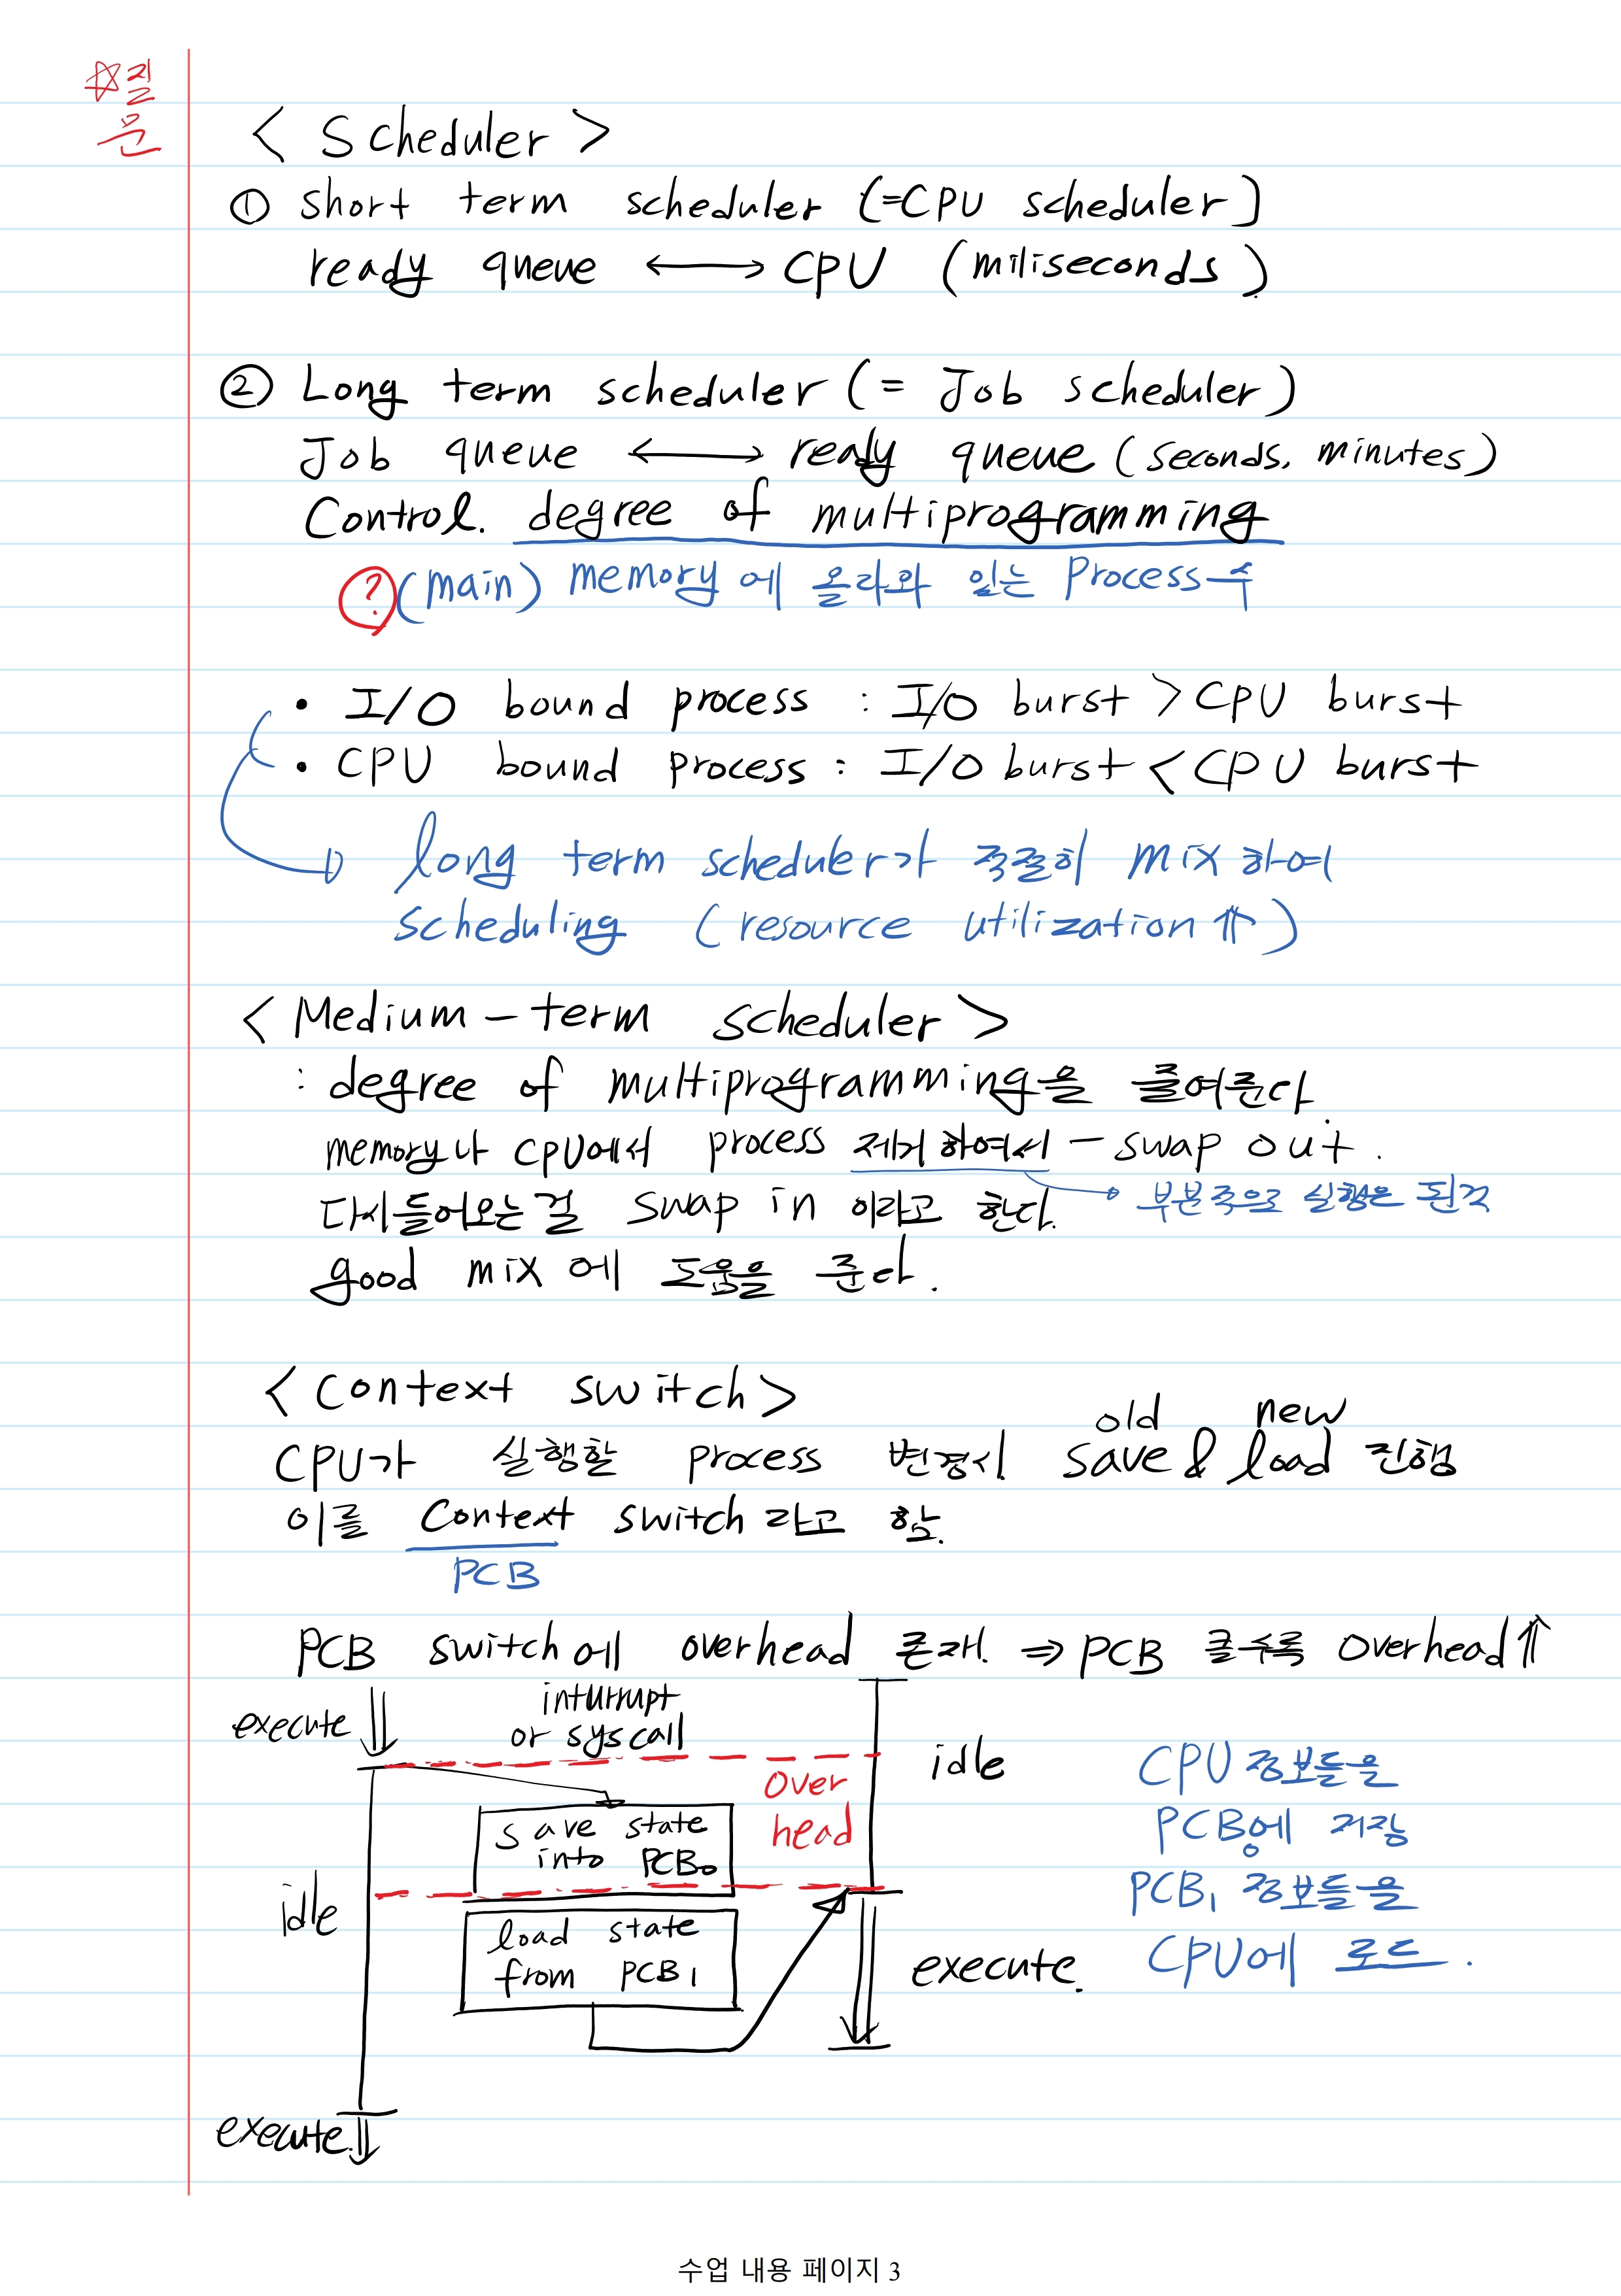 ☆질
문
< Scheduler >
① short term scheduler (=CPU scheduler)
ready queue ⟷ CPU (miliseconds)
② Long term scheduler (= Job scheduler)
Job queue ⟷ ready queue (seconds, minutes)
Control. degree of multiprogramming
? (main) memory에 올라와 있는 Process 수
• I/O bound process : I/O burst > CPU burst
• CPU bound process : I/O burst < CPU burst
long term scheduler가 적절히 mix 하여
scheduling (resource utilization ⇑)
< Medium-term scheduler >
: degree of multiprogramming을 줄여준다.
memory나 CPU에서 process 제거하여서 - swap out.
다시들어오는걸 swap in 이라고 한다. → 부분적으로 실행은 된것
good mix에 도움을 준다.
< Context switch >
old new
CPU가 실행할 process 변경시 save & load 진행
이를 Context switch라고 함.
PCB
PCB switch에 overhead 존재. ⇒ PCB 클수록 overhead ⇑
execute
inturrupt
or sys call
idle
over
head
save state
into PCB₀
idle
load state
from PCB₁
execute.
execute.
CPU 정보들을
PCB₀에 저장
PCB₁ 정보들을
CPU에 로드.
수업 내용 페이지 3